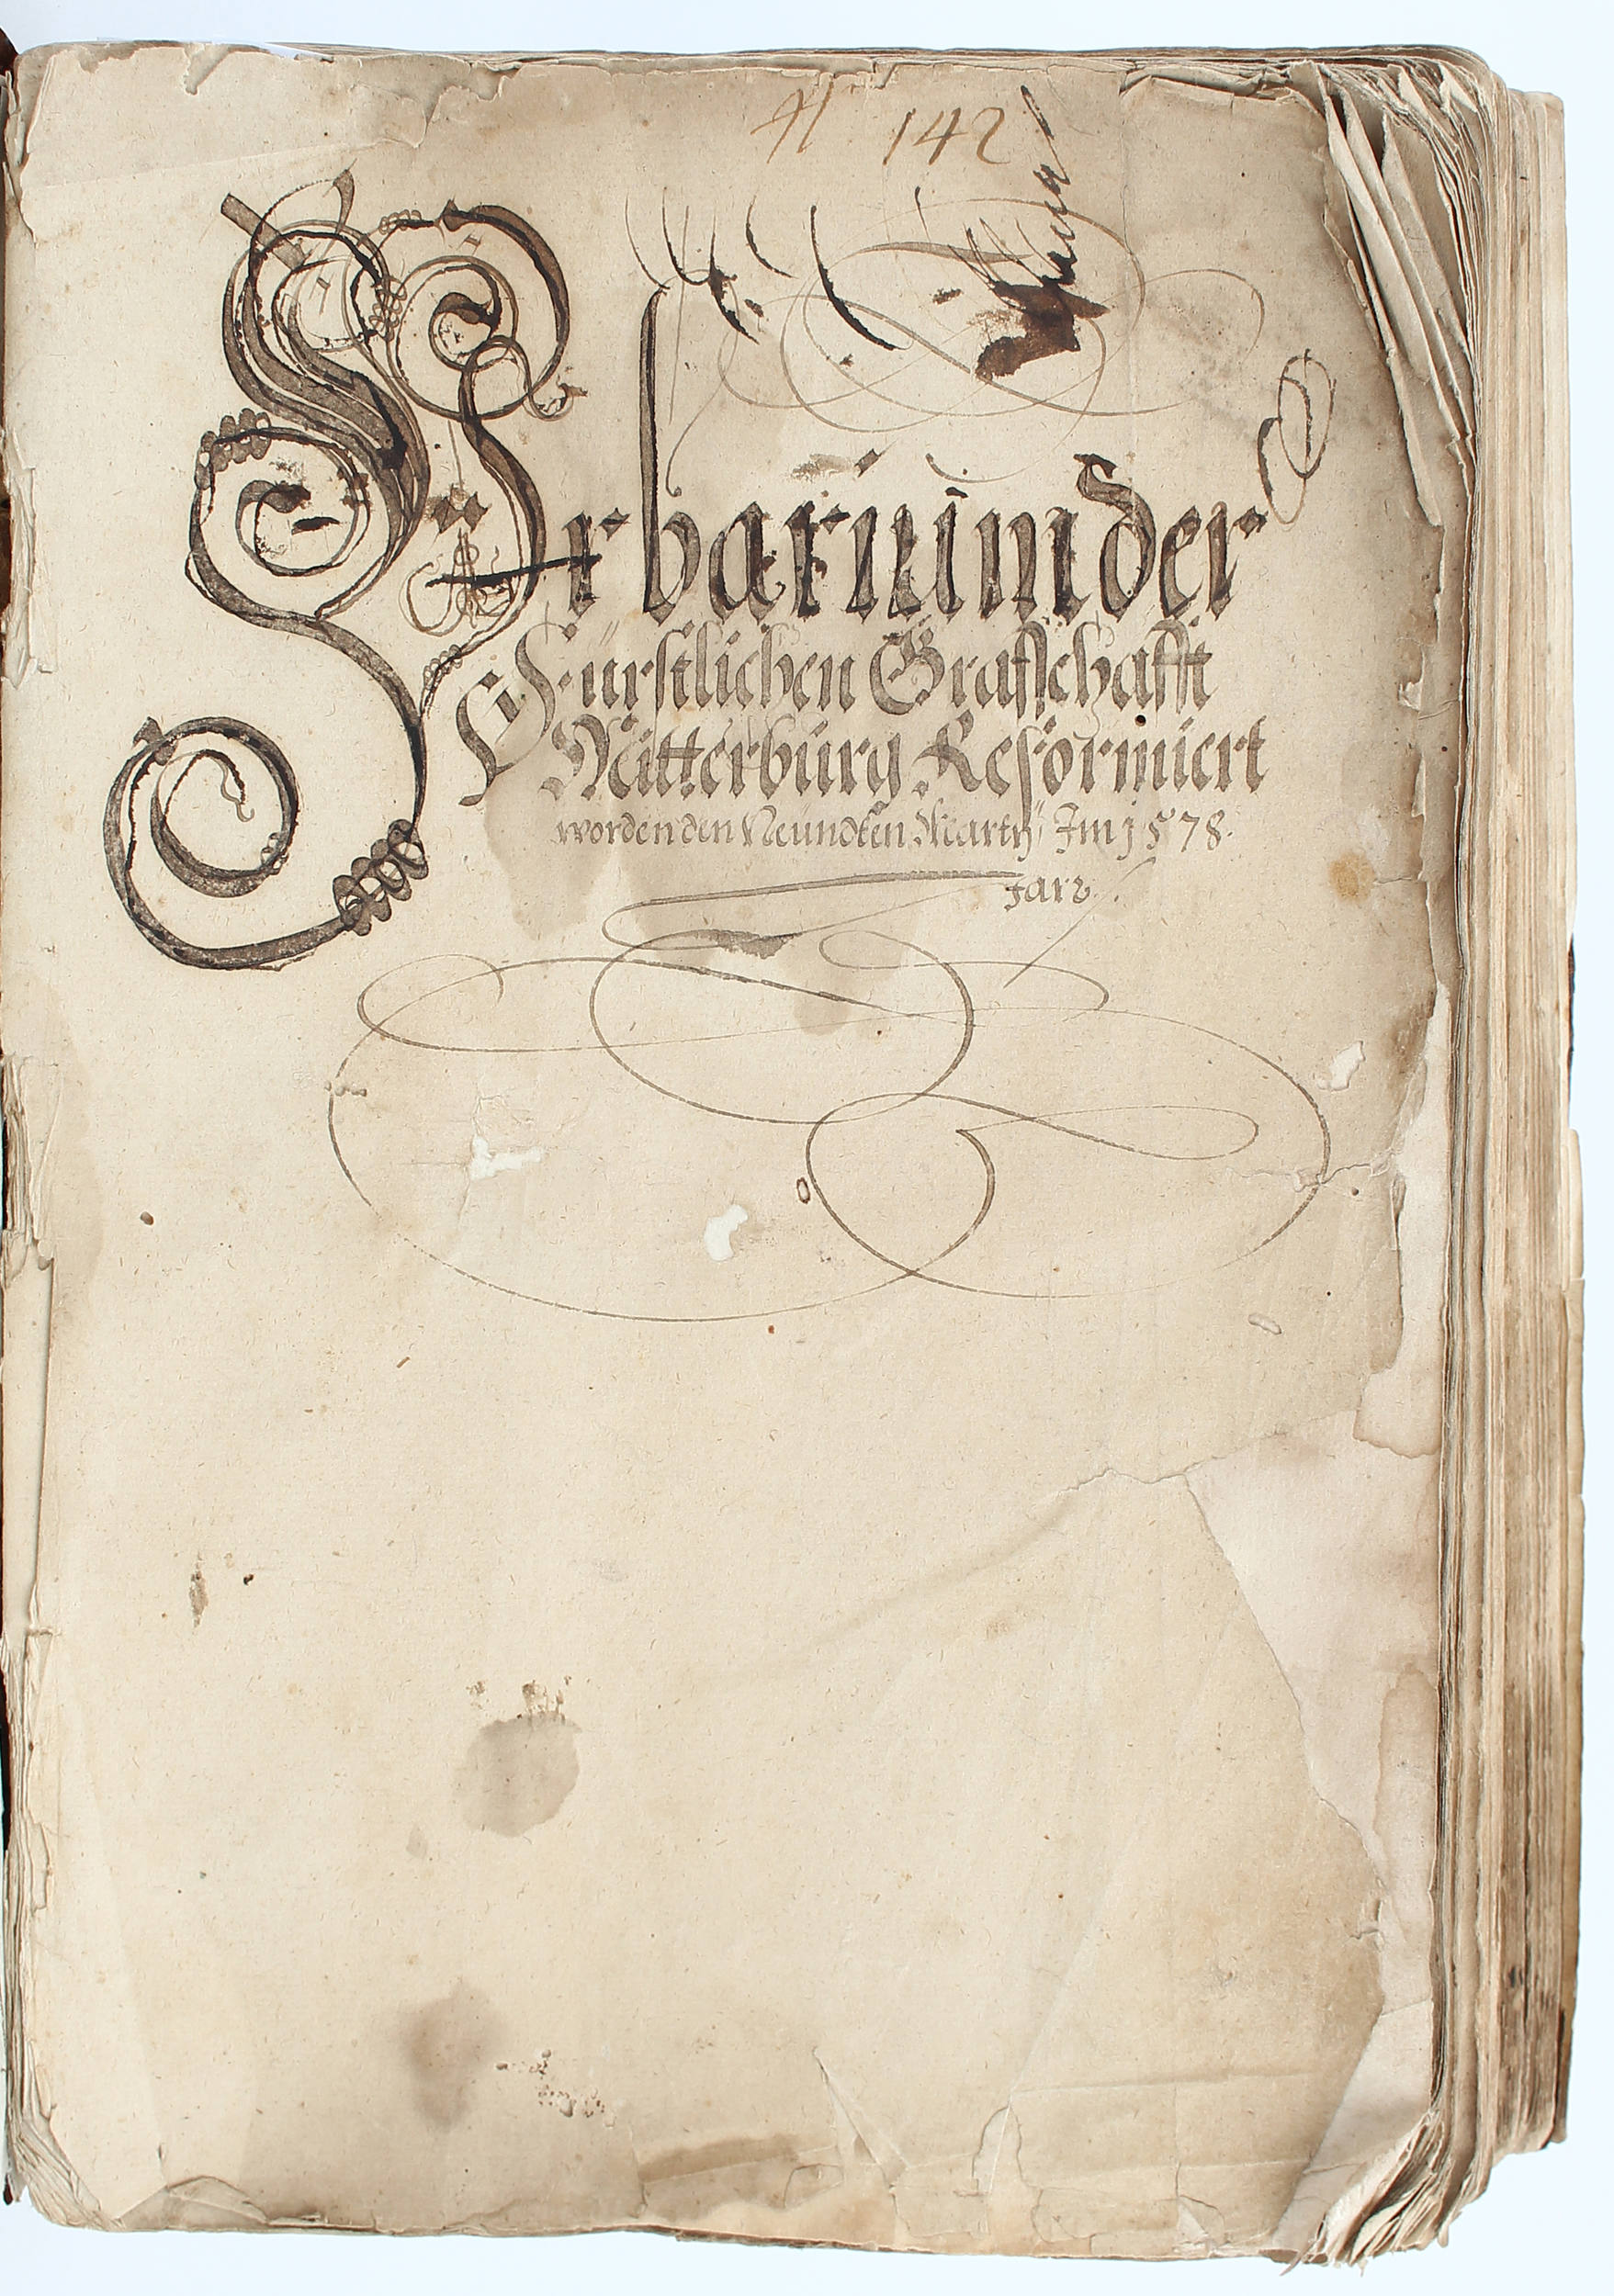 N 142
Urbarium der
Fürstlichen Grafschafft
Mitterburg Reformiert
worden den Neundten Marty Im 1578.
Jar